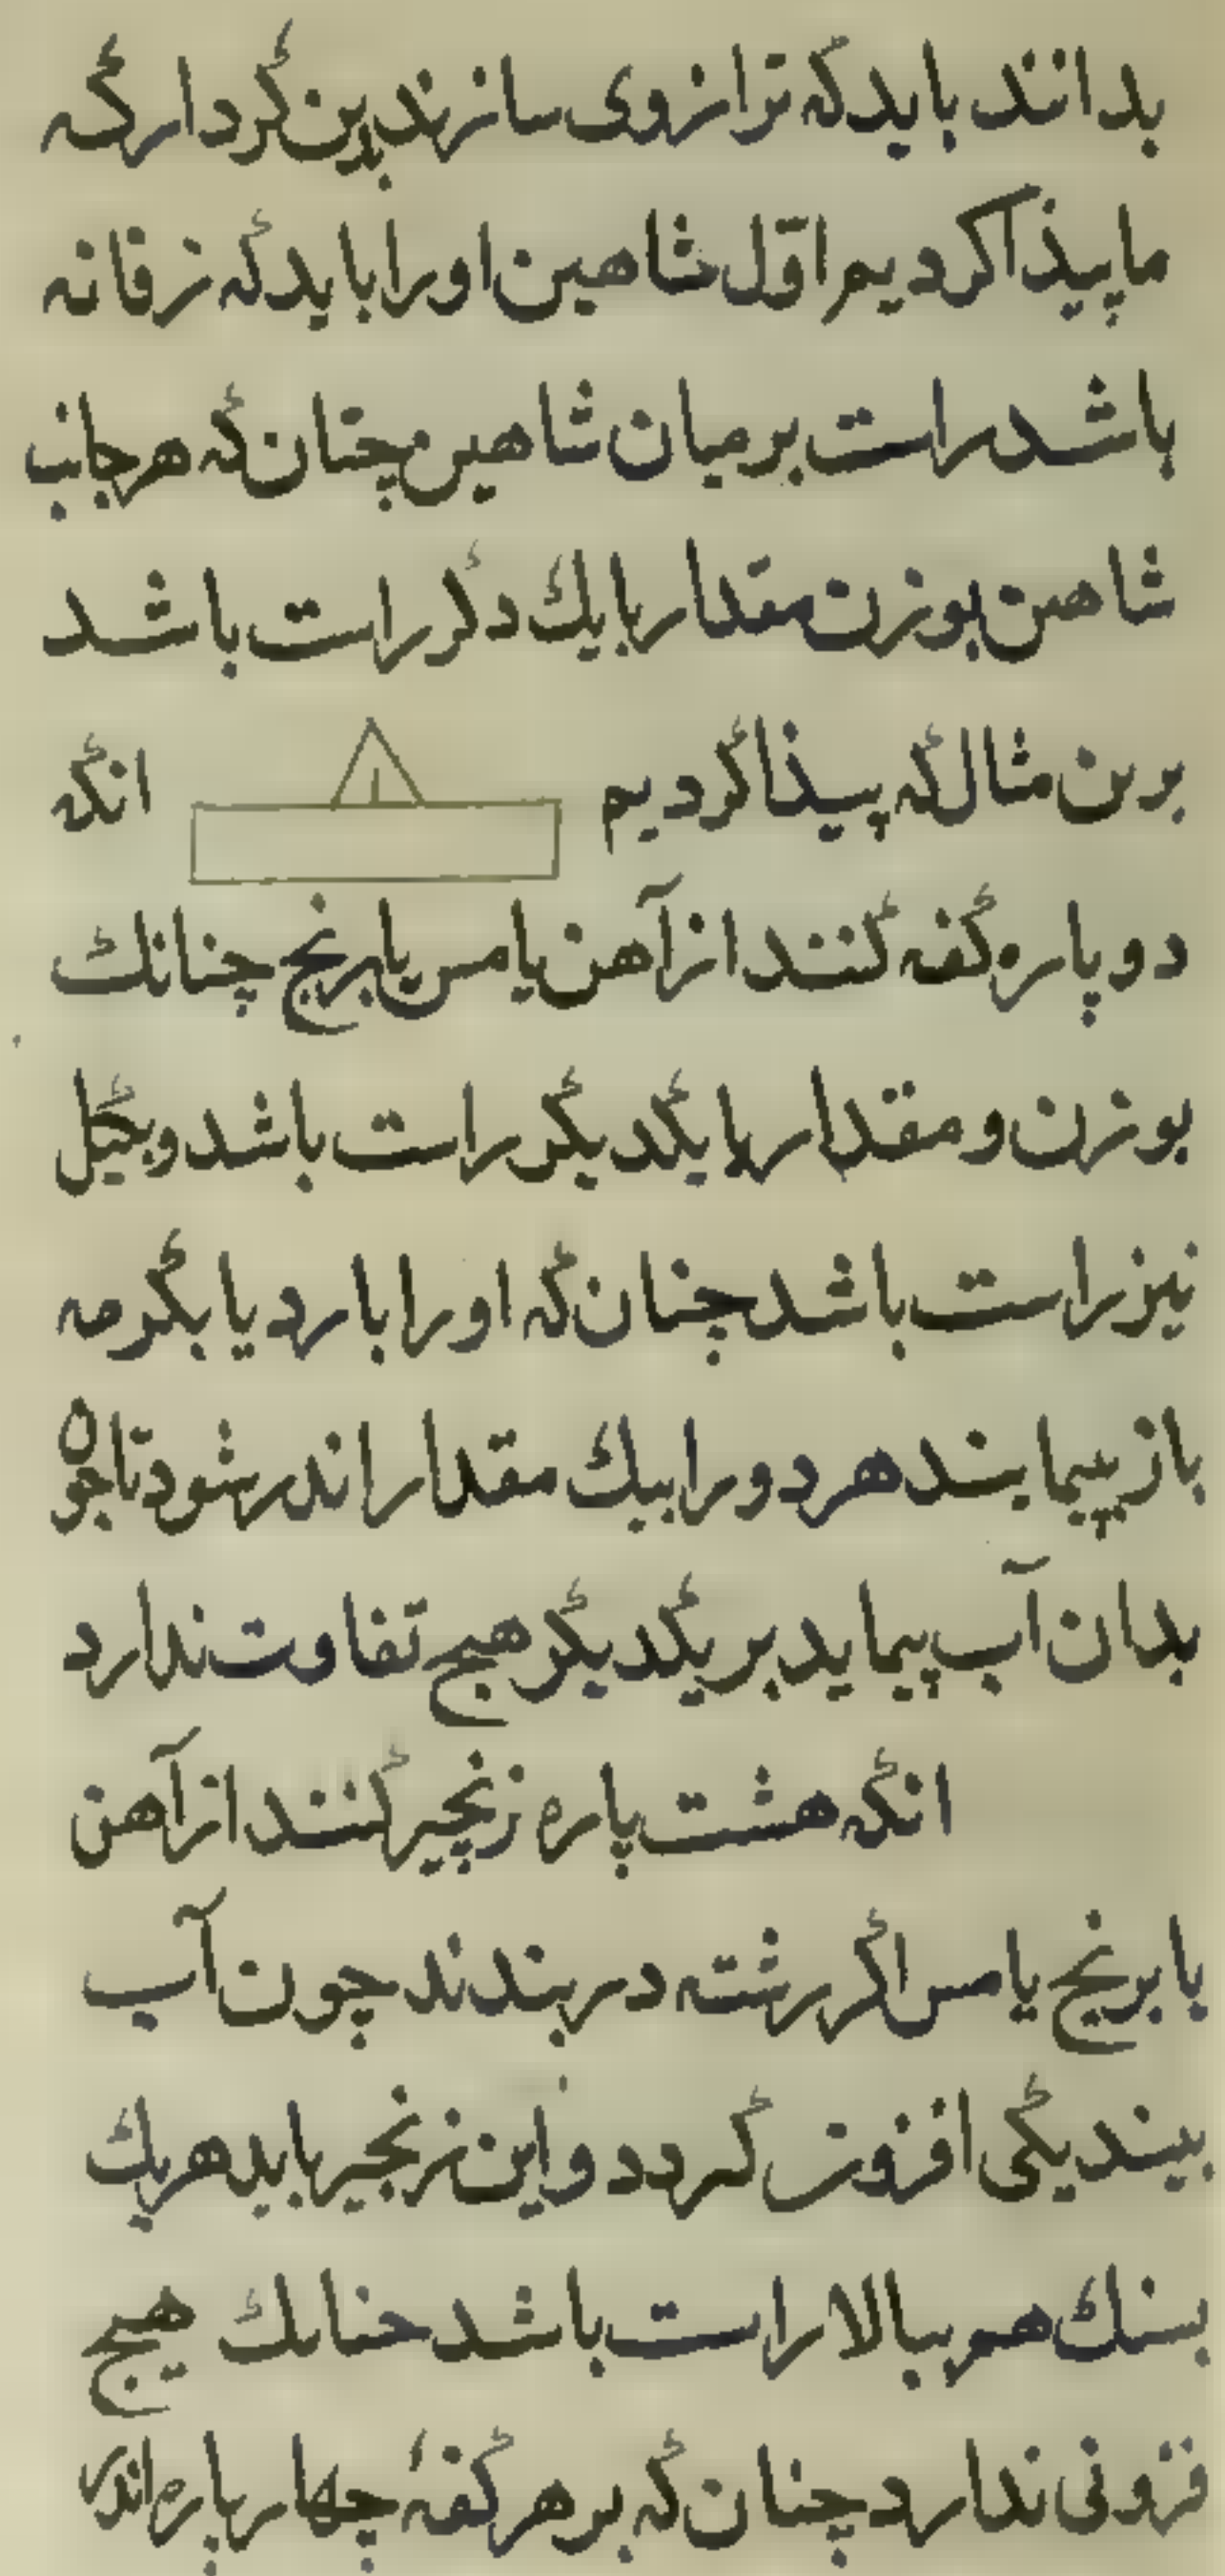 بدانند بايد که ترازوی سازند بدين کردار که
ما پيذا کرديم اوّل شاهين او را بايد که زفانه
باشد راست بر ميان شاهين چنان که هر جانب
شاهين بوزن مقدار با يك دکر راست باشد
برين مثال که پيذا کرديم انکه
دو پاره کفه کنند از آهن يا مس يا برنج چنانك
بوزن و مقدار با يکديکر راست باشد و بکيل
نيز راست باشد چنان که او را بارد يا بکرمه
باز پيمايند هر دو را بيك مقدار اندر شود تا جو
بدان آب پيمايد بر يکديکر هيج تفاوت ندارد
انکه هشت پاره زنجير کنند از آهن
يا برنج يا مس اکر رشته در بندند چون آب
بيند يکی افزون کردد و اين زنجير بايد هر يك
بسنك هم ببالا راست باشد حنانك هيج
فزونی ندارد چنان که بر هر کفهٔ چهار پاره اندر